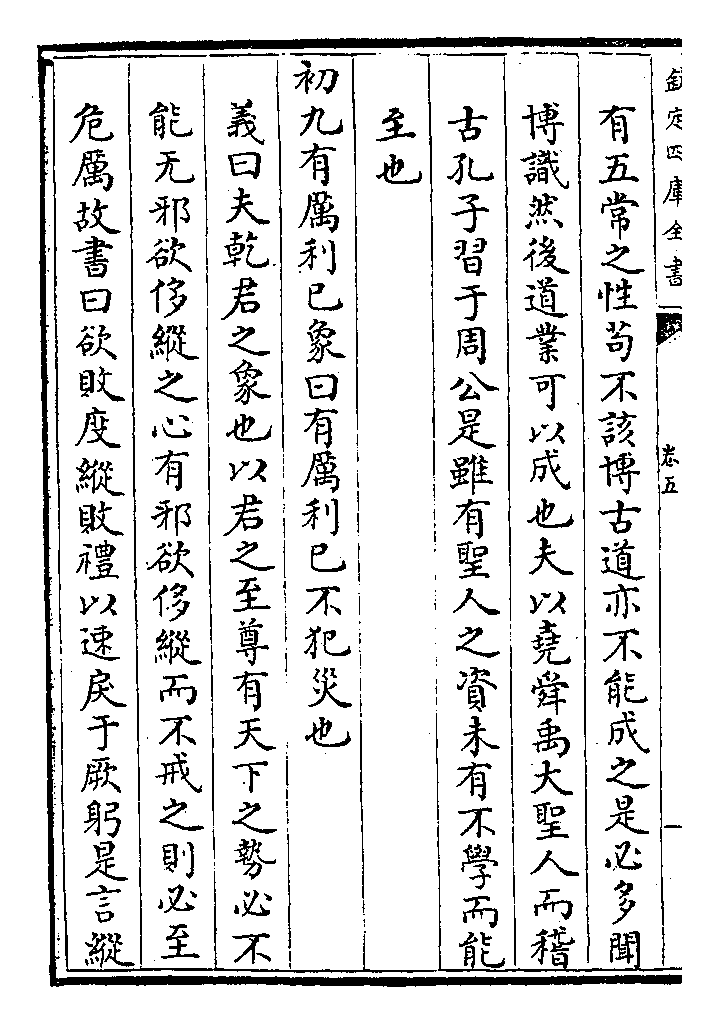 欽定四庫全書
卷五
有五常之性茍不該博古道亦不能成之是必多聞
博識然後道業可以成也夫以堯舜禹大聖人而稽
古孔子習于周公是雖有聖人之資未有不學而能
至也
初九有厲利已象曰有厲利已不犯災也
義曰夫乾君之象也以君之至尊有天下之勢必不
能无邪欲侈縱之心有邪欲侈縱而不戒之則必至
危厲故書曰欲敗度縱敗禮以速戾于厥躬是言縱